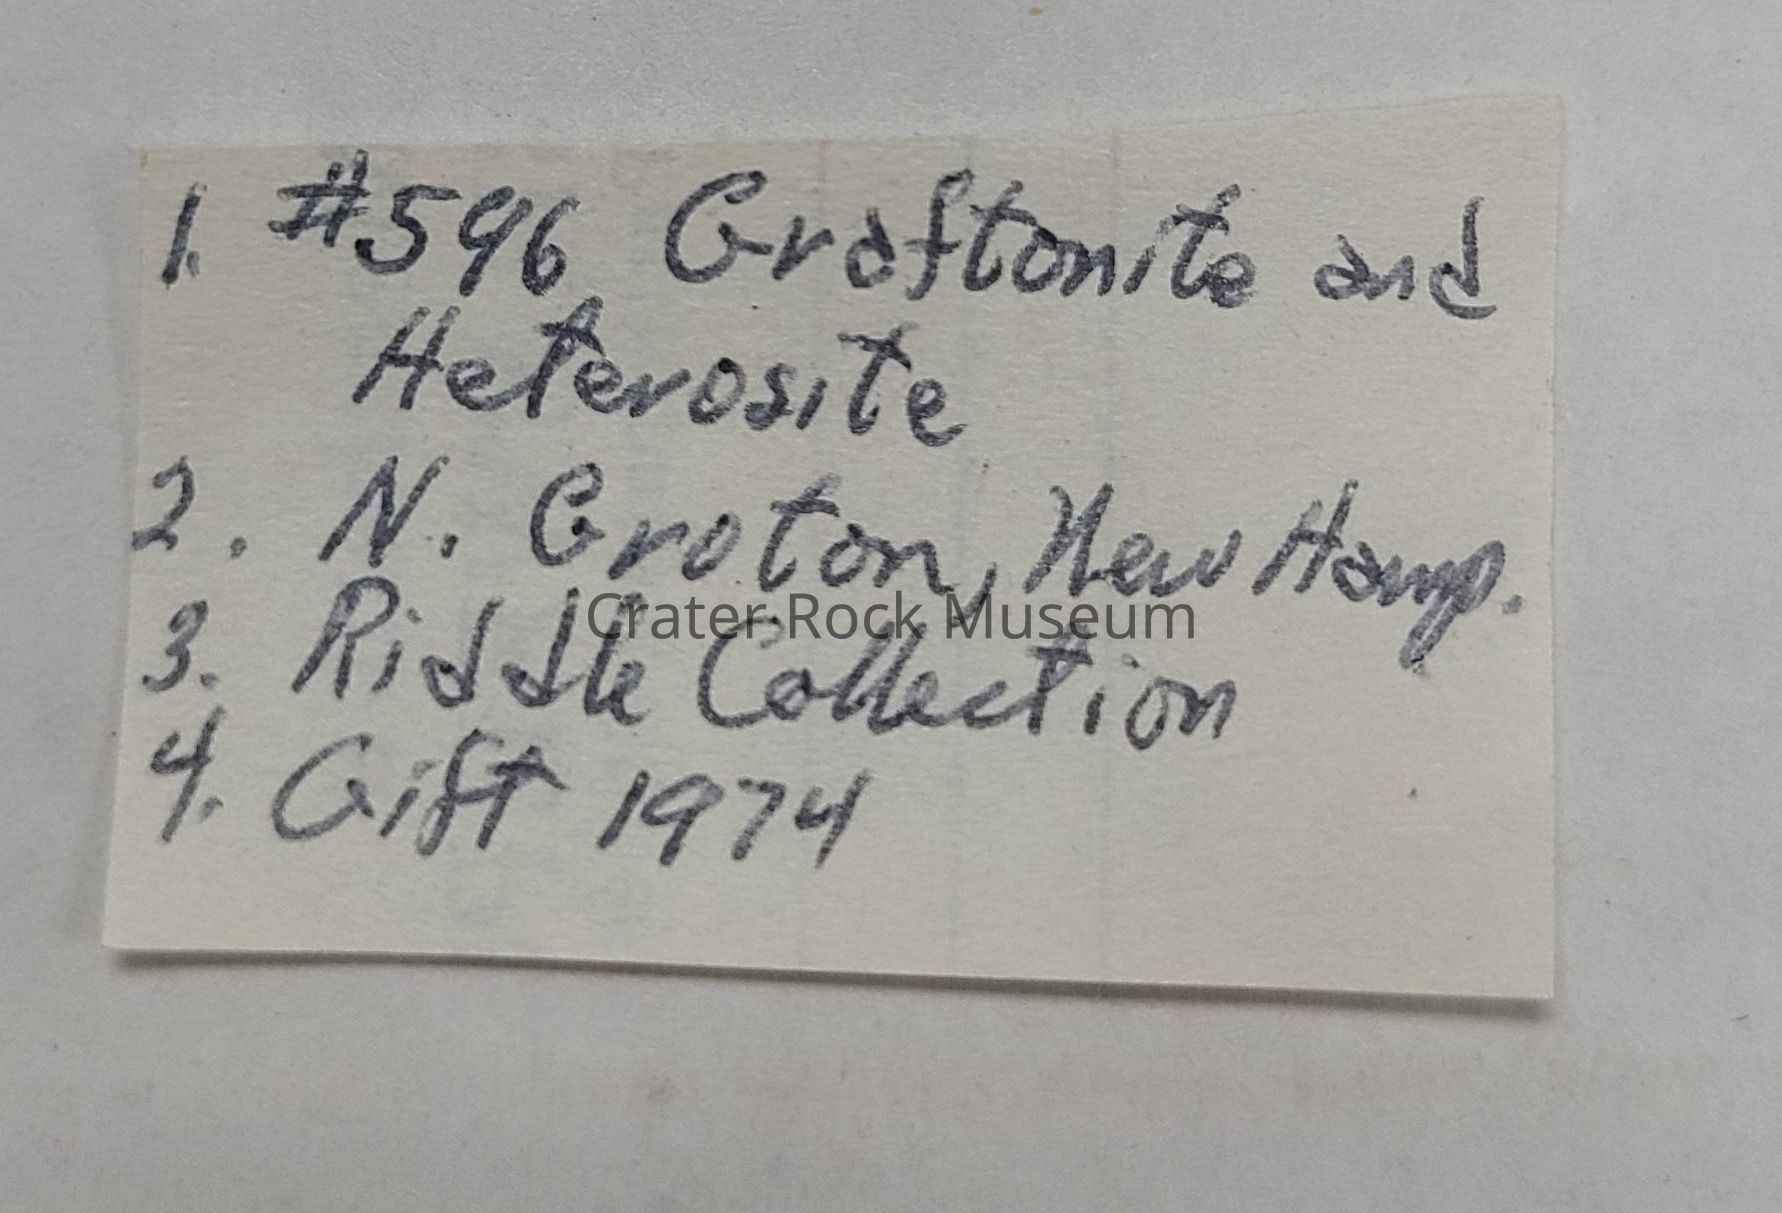 1. #596 Graftonite and
Heterosite
2. N. Groton, New Hamp.
Crater Rock Museum
3. Riddle Collection
4. Gift 1974